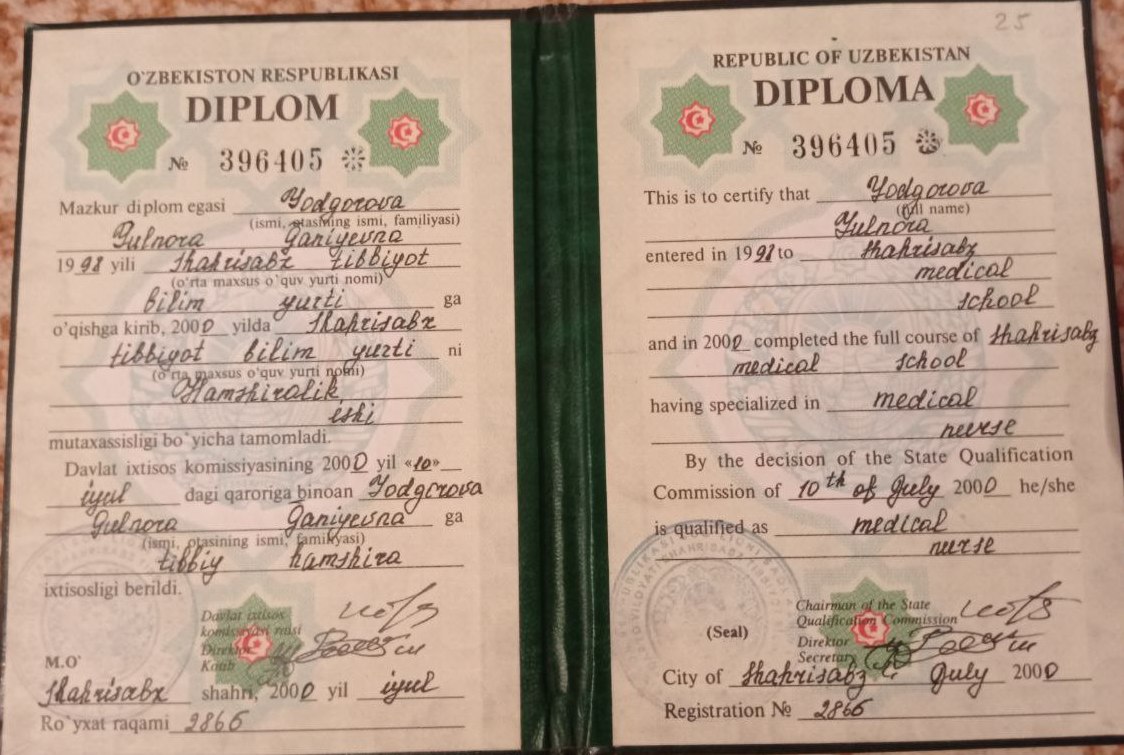 O'ZBEKISTON RESPUBLIKASI
DIPLOM
№ 396405
Mazkur diplom egasi Yodgorova
(ismi, otasining ismi, familiyasi)
Gulnora Ganiyevna
1998 yili Shahrisabz tibbiyot
(o'rta maxsus o'quv yurti nomi)
bilim yurti ga
o'qishga kirib, 2000 yilda Shahrisabz
tibbiyot bilim yurti ni
(o'rta maxsus o'quv yurti nomi)
Hamshiralik
ishi
mutaxassisligi bo'yicha tamomladi.
Davlat ixtisos komissiyasining 2000 yil «10»
iyul dagi qaroriga binoan Yodgorova
Gulnora Ganiyevna ga
(ismi, otasining ismi, familiyasi)
tibbiy hamshira
ixtisosligi berildi.
Davlat ixtisos
komissiyasi raisi
Direktor
Kotib
M.O'
Shahrisabz shahri, 2000 yil iyul
Ro'yxat raqami 2866
25
REPUBLIC OF UZBEKISTAN
DIPLOMA
№ 396405
This is to certify that Yodgorova
(full name)
Gulnora
entered in 1998 to Shahrisabz
medical
school
and in 2000 completed the full course of Shahrisabz
medical school
having specialized in medical
nurse
By the decision of the State Qualification
Commission of 10th of July 2000 he/she
is qualified as medical
nurse
Chairman of the State
Qualification Commission
(Seal)
Direktor
Secretary
City of Shahrisabz July 2000
Registration № 2866